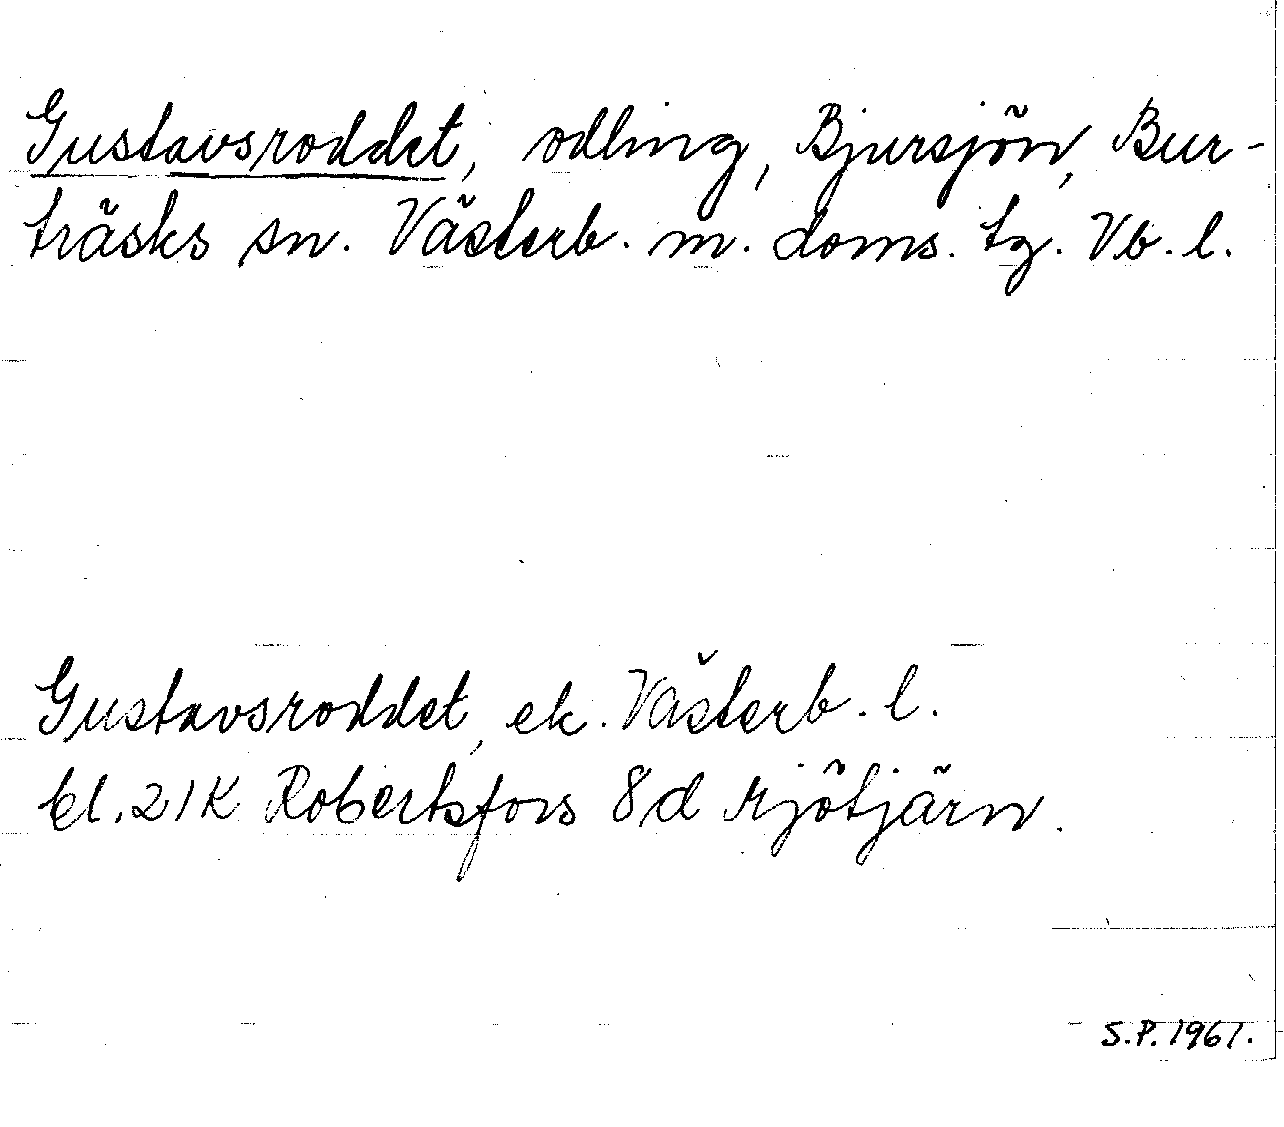 Gustavsroddet, odling, Bjursjön, Bur-
träsks sn. Västerb. m. doms. tg. Vb. l.
Gustavsroddet, ek. Västerb. l.
bl. 21K Robertsfors 8d Mjötjärn.
S.P. 1961.